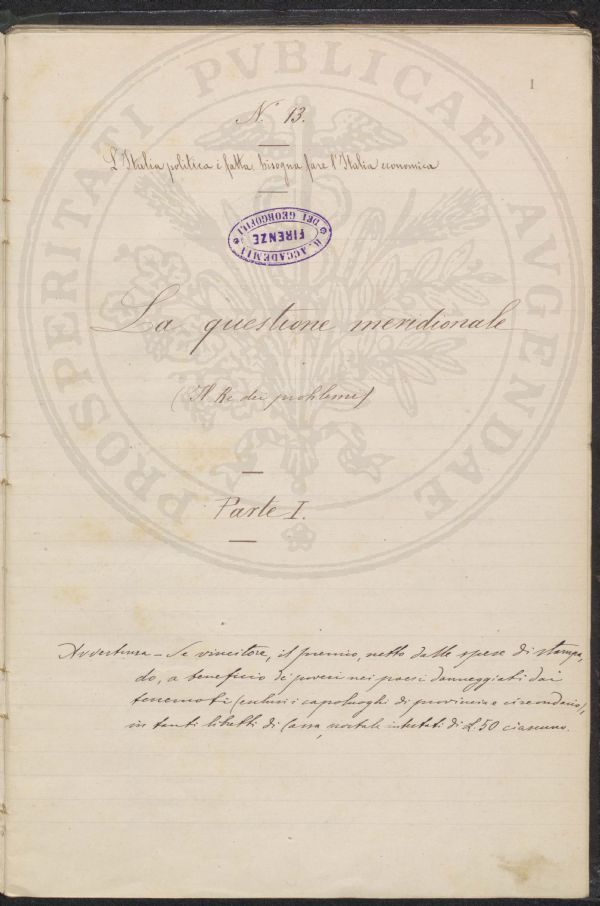 1
N. 13.
L'Italia politica è fatta, bisogna fare l'Italia economica
R. ACCADEMIA
DEI GEORGOFILI
FIRENZE
La questione meridionale
(Il Re dei problemi)
Parte I.
Avvertenza – Se vincitore, il premio, netto dalle spese di stampa,
do, a beneficio de' poveri nei paesi danneggiati dai
terremoti (esclusi i capoluoghi di provincia e circondario),
in tanti libretti di Cassa postale intestati di L. 50 ciascuno.
PROSPERITATI PVBLICAE AVGENDAE